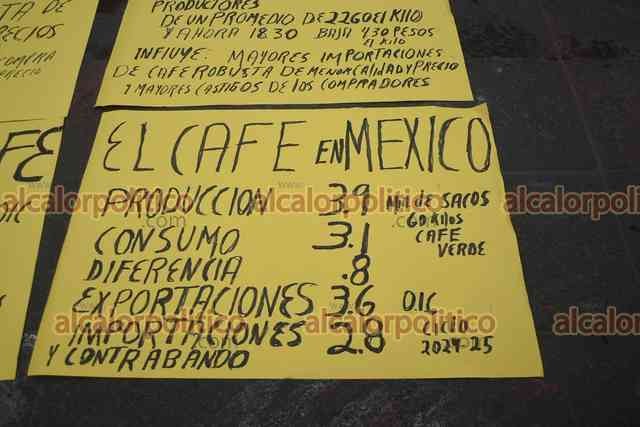 TA DE
RECIOS
COMPRA
PRECIO
FE
DIC
PRODUCTORES
DE UN PROMEDIO DE 22.60 EL KILO
Y AHORA 18.30 BAJA 4.30 PESOS
EL KILO
INFLUYE: MAYORES IMPORTACIONES
DE CAFE ROBUSTA DE MENOR CALIDAD Y PRECIO
Y MAYORES CASTIGOS DE LOS COMPRADORES
EL CAFE EN MEXICO
PRODUCCION 3.9 MILL DE SACOS
60 KILOS
CAFE
VERDE
CONSUMO 3.1
DIFERENCIA .8
EXPORTACIONES 3.6 OIC
IMPORTACIONES 2.8 CICLO
Y CONTRABANDO 2024-25
www.alcalorpolitico.com